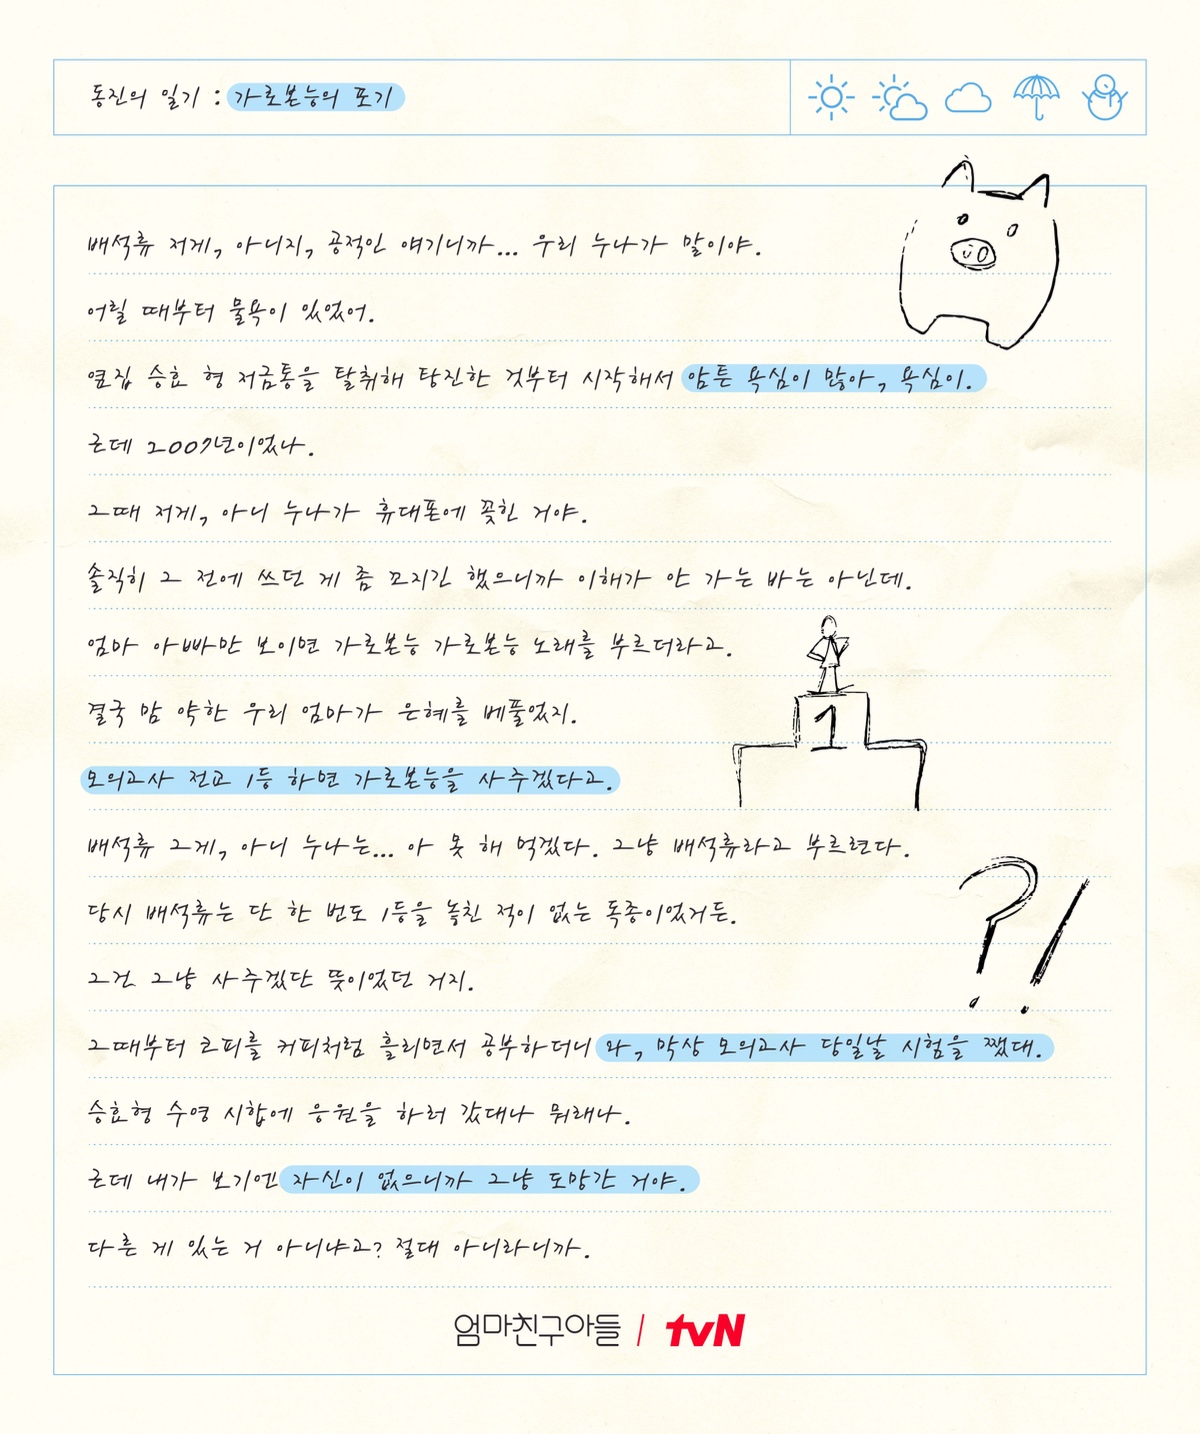 동진의 일기 : 가로본능의 포기
배석류 저게, 아니지, 공적인 얘기니까... 우리 누나가 말이야.
어릴 때부터 물욕이 있었어.
옆집 승효 형 저금통을 탈취해 탕진한 것부터 시작해서 암튼 욕심이 많아, 욕심이.
근데 2007년이었나.
그때 저게, 아니 누나가 휴대폰에 꽂힌 거야.
솔직히 그 전에 쓰던 게 좀 꼬지긴 했으니까 이해가 안 가는 바는 아닌데.
엄마 아빠만 보이면 가로본능 가로본능 노래를 부르더라고.
결국 맘 약한 우리 엄마가 은혜를 베풀었지.
모의고사 전교 1등 하면 가로본능을 사주겠다고.
배석류 그게, 아니 누나는... 아 못 해 먹겠다. 그냥 배석류라고 부르련다.
당시 배석류는 단 한 번도 1등을 놓친 적이 없는 독종이었거든.
그건 그냥 사주겠단 뜻이었던 거지.
그때부터 코피를 커피처럼 흘리면서 공부하더니 와, 막상 모의고사 당일날 시험을 쨌대.
승효형 수영 시합에 응원을 하러 갔대나 뭐래나.
근데 내가 보기엔 자신이 없으니까 그냥 도망간 거야.
다른 게 있는 거 아니냐고? 절대 아니라니까.
1
?!
엄마친구아들 / tvN